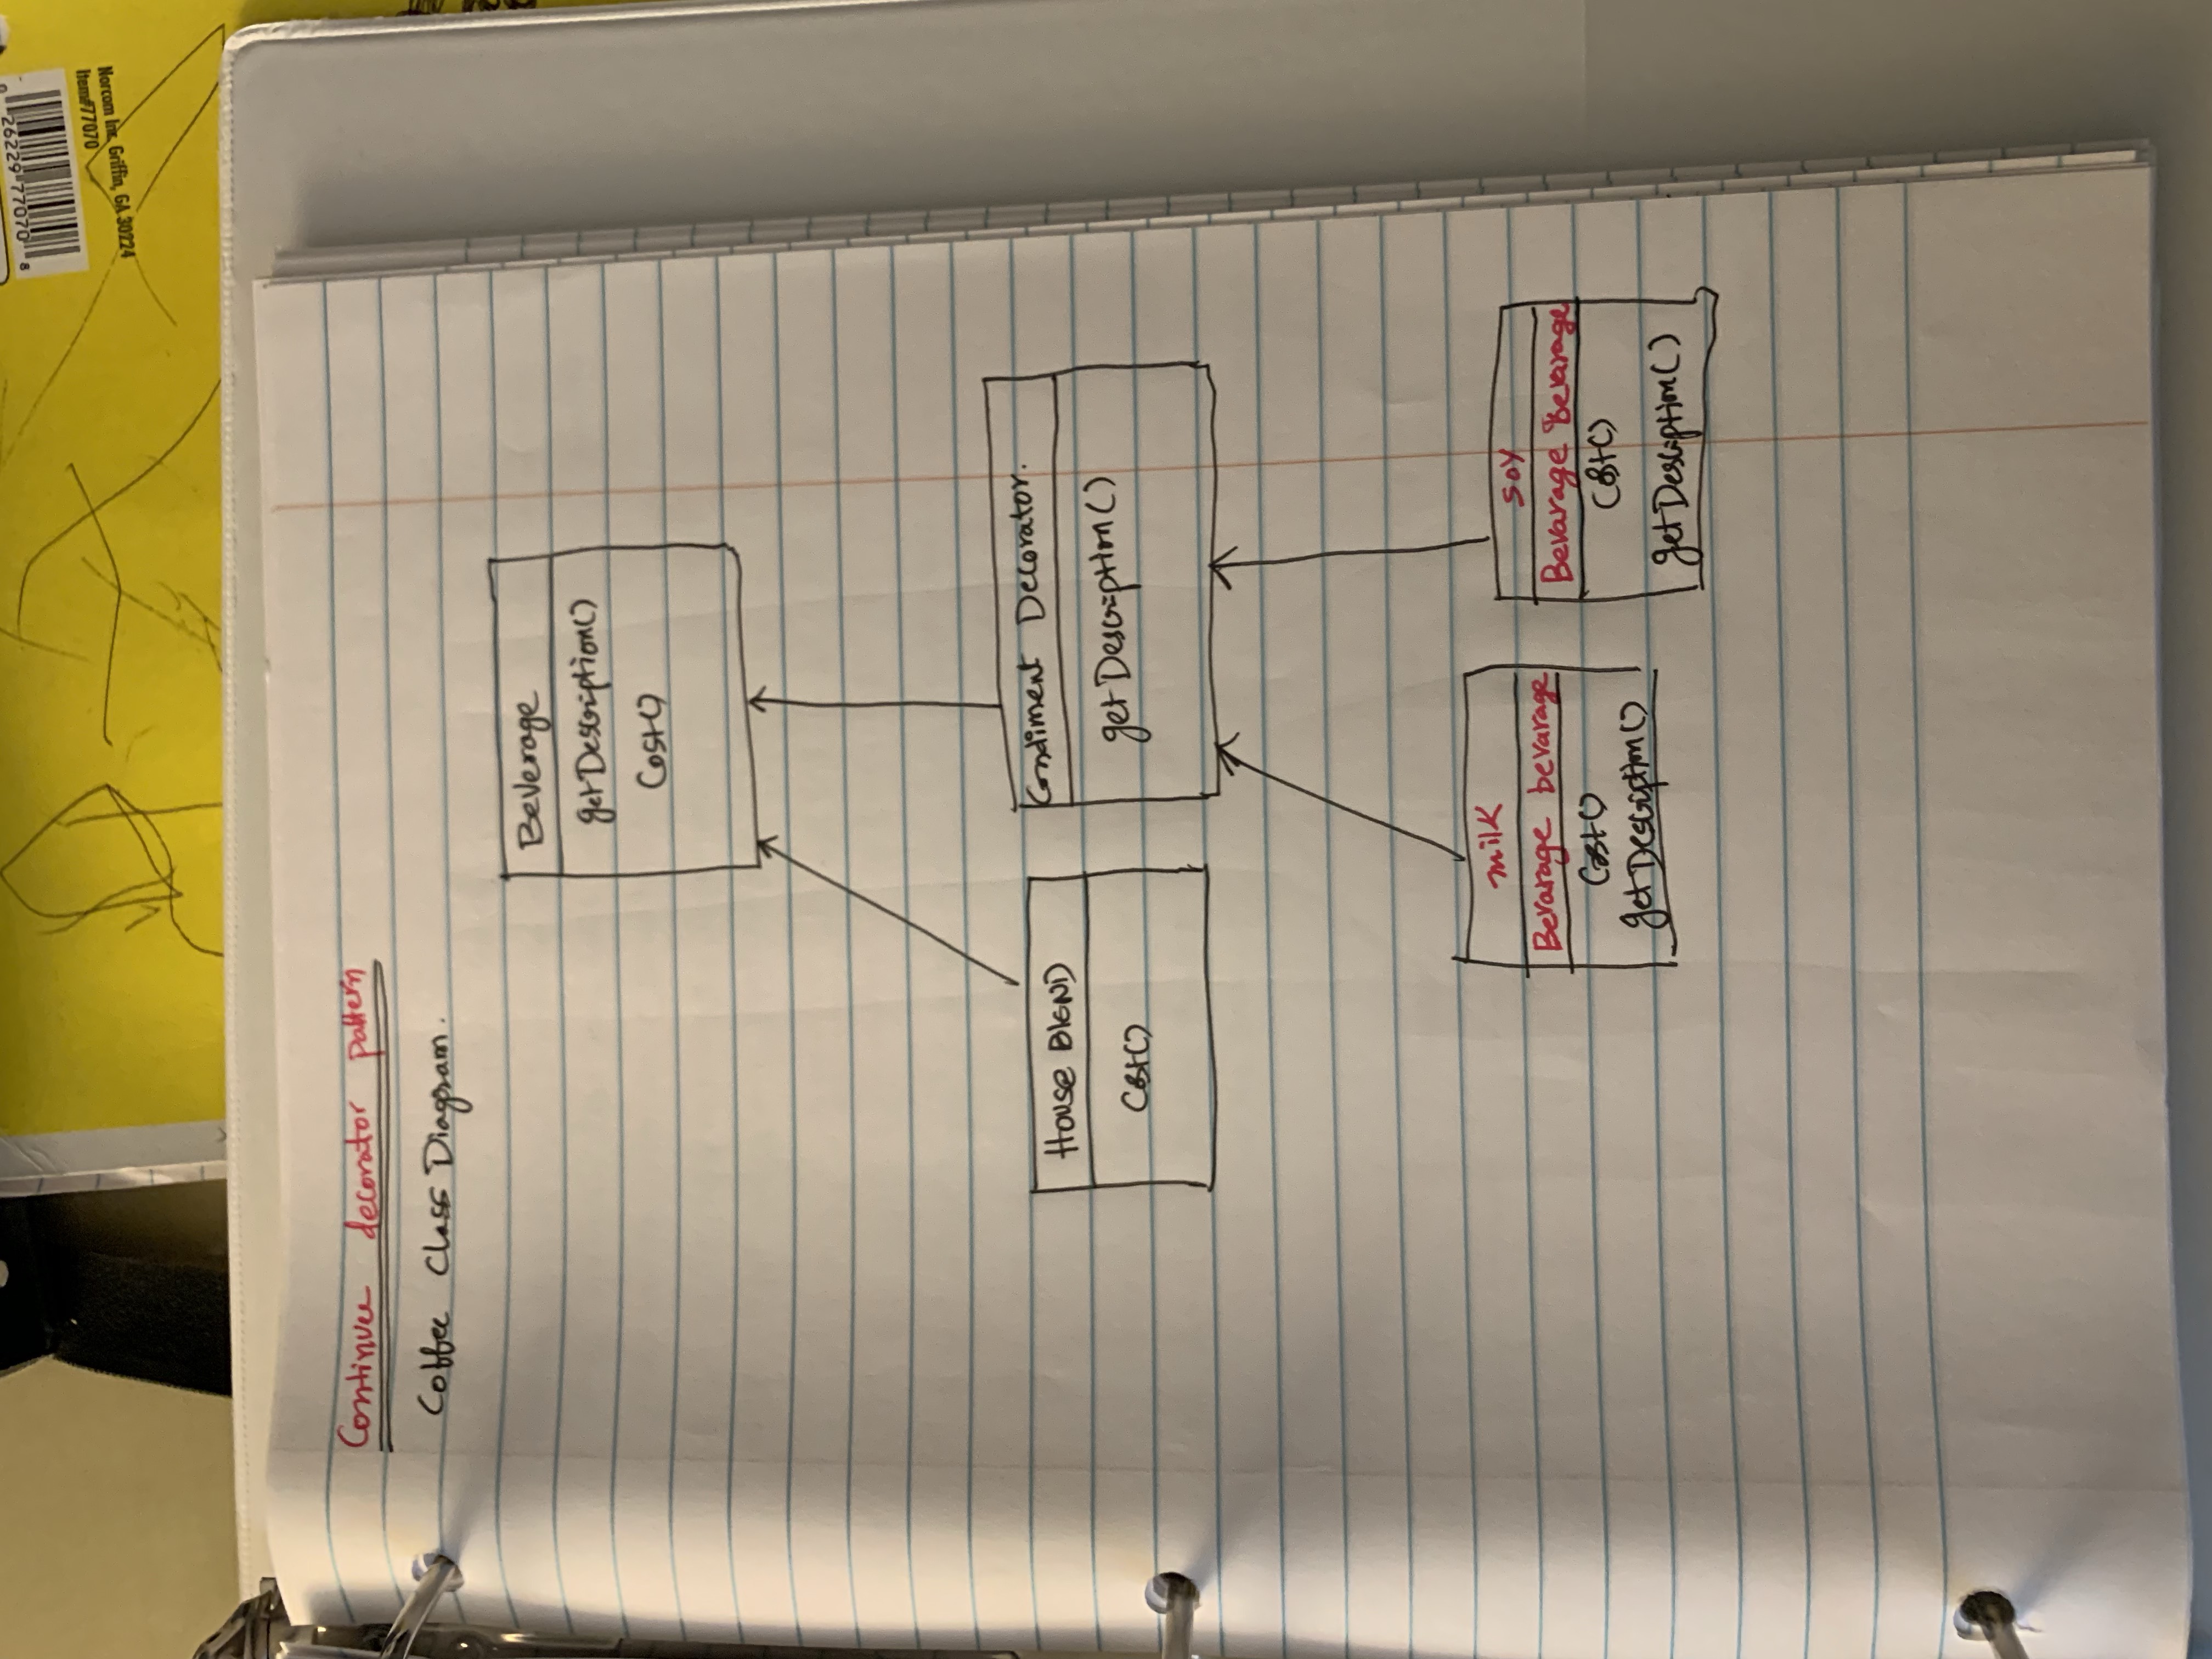 0 26229 77070 8
Item#77070
Norcom Inc. Griffin, GA 30224
Continuee decorator pattern
Coffee Class Diagram.
Beverage
getDescription()
Cost()
House BlEND
Cost()
Condiment Decorator.
getDescription()
milk
Bevarage bevarage
Cost()
getDescription()
soy
Bevarage Bevarage
Cost()
getDescription()